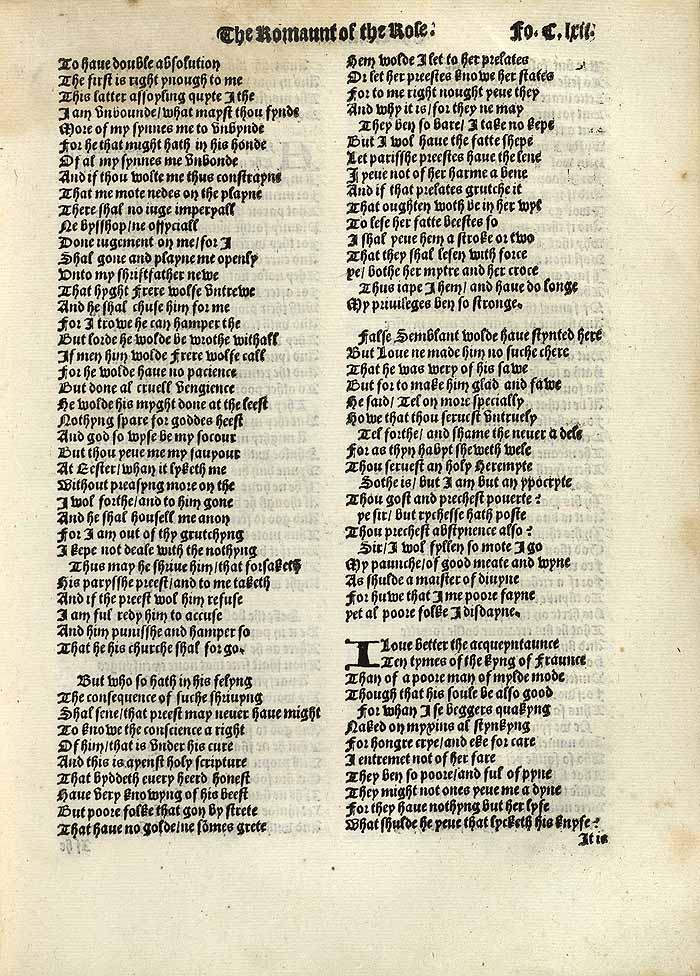 The Romaunt of the Rose.
Fo. C. lxii.
To haue double absolution
The first is right ynough to me
This latter assoyling quyte I the
I am vnbounde/what mayst thou fynde
More of my synnes me to vnbynde
For he that might hath in his honde
Of al my synnes me vnbonde
And if thou wolte me thus constrayne
That me mote nedes on the playne
There shal no iuge imperyall
Ne bysshop/ne offyciall
Done iugement on me/for I
Shal gone and playne me openly
Vnto my shriftfather newe
That hyght Frere wolfe vntrewe
And he shal chuse him for me
For I trowe he can hamper the
But lorde he wolde be wrothe withall
If men him wolde Frere wolfe call
For he wolde haue no pacience
But done al cruell vengience
He wolde his myght done at the leest
Nothyng spare for goddes heest
And god so wyse be my socour
But thou yeue me my sauyour
At Eester/whan it lyketh me
Without preasyng more on the
I wol forthe/and to him gone
And he shal housell me anon
For I am out of thy grutchyng
I kepe not deale with the nothyng
Thus may he shriue him/that forsaketh
His parysshe preest/and to me taketh
And if the preest wol him refuse
I am ful redy him to accuse
And him punisshe and hamper so
That he his churche shal for go.
But who so hath in his felyng
The consequence of suche shriuyng
Shal sene/that preest may neuer haue might
To knowe the conscience a right
Of him/that is vnder his cure
And this is ayenst holy scripture
That byddeth euery heerd honest
Haue very knowyng of his beest
But poore folke that gon by strete
That haue no golde/ne sōmes grete
Hem wolde I let to her prelates
Or let her preestes knowe her states
For to me right nought yeue they
And why it is/for they ne may
They ben so bare/I take no kepe
But I wol haue the fatte shepe
Let parisshe preestes haue the lene
I yeue not of her harme a bene
And if that prelates grutche it
That oughten woth be in her wyt
To lese her fatte beestes so
I shal yeue hem a stroke or two
That they shal lesen with force
ye/bothe her mytre and her croce
Thus iape I hem/and haue do longe
My priuileges ben so stronge.
False Semblant wolde haue stynted here
But Loue ne made him no suche chere
That he was wery of his sawe
But for to make him glad and fawe
He said/Tel on more specially
Howe that thou seruest vntruely
Tel forthe/and shame the neuer a dele
For as thyn habyt sheweth wele
Thou seruest an holy Heremyte
Sothe is/but I am but an ypocryte
Thou gost and prechest pouerte?
ye sir/but rychesse hath poste
Thou prechest abstynence also?
Sir/I wol fyllen so mote I go
My paunche/of good meate and wyne
As shulde a maister of diuyne
For huwe that I me poore fayne
yet al poore folke I disdayne.
I Loue better the acqueyntaunce
Ten tymes of the kyng of Fraunce
Than of a poore man of mylde mode
Though that his soule be also good
For whan I se beggers quakyng
Naked on myxins al stynkyng
For hongre crye/and eke for care
I entremet not of her fare
They ben so poore/and ful of pyne
They might not ones yeue me a dyne
For they haue nothyng but her lyfe
What shulde he yeue that lycketh his knyfe?
It is